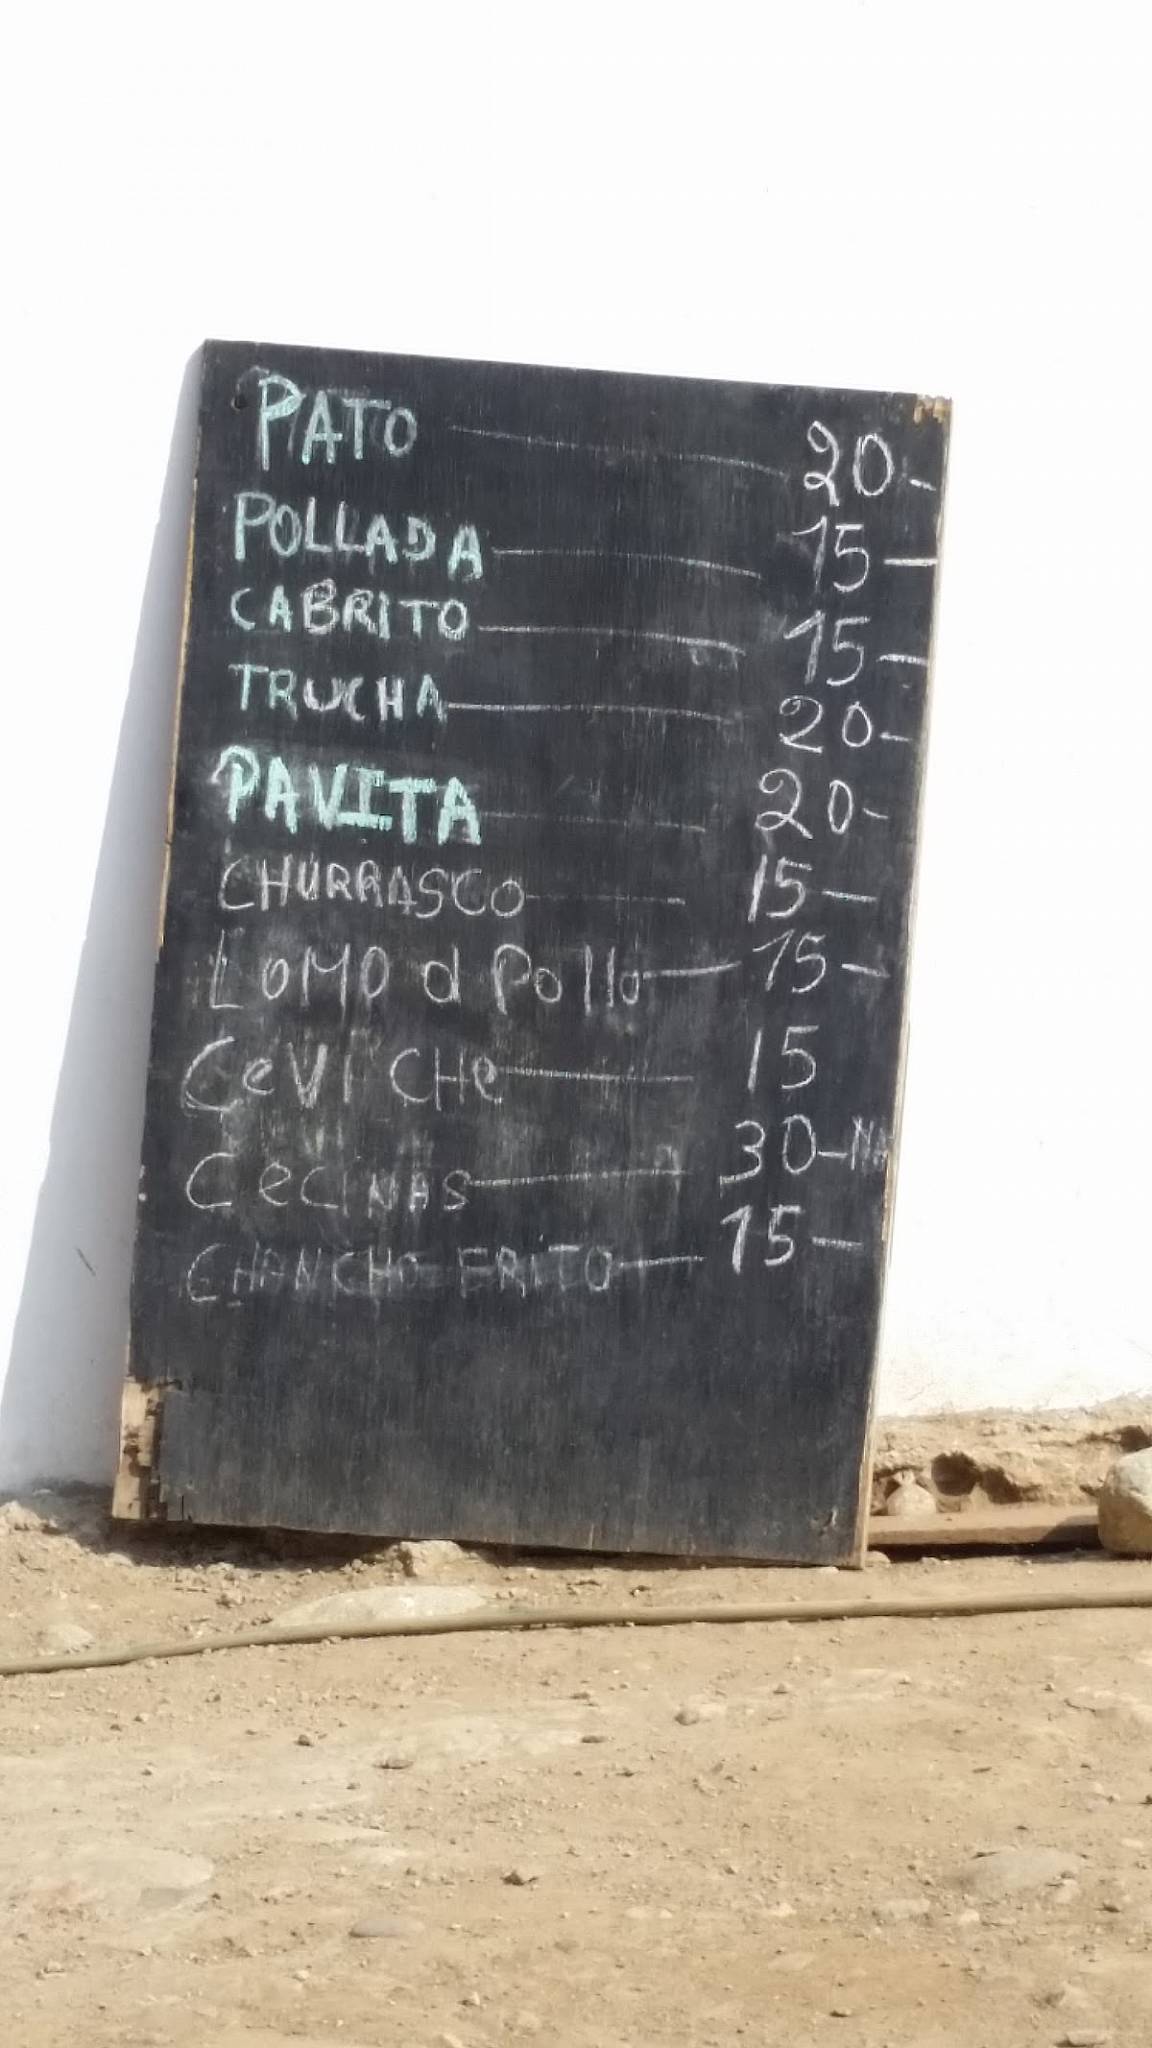 PATO 20-
POLLADA 15-
CABRITO 15-
TRUCHA 20-
PAVITA 20-
CHURRASCO 15-
LOMO d Pollo 15-
CeVICHe 15
CeCINAS 30-
CHANCHO FRITO 15-